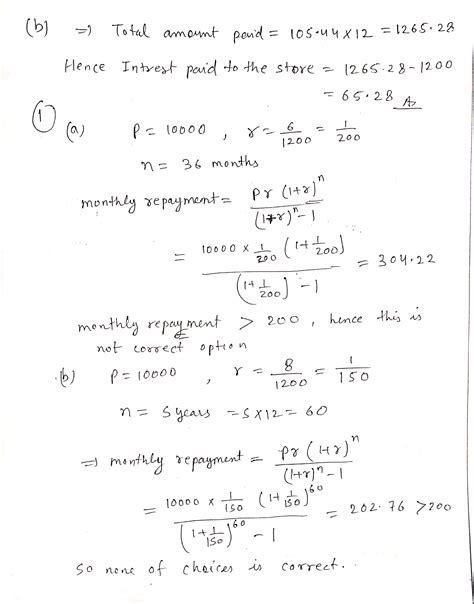 (b) ⇒ Total amount paid = 105.44 X 12 = 1265.28
Hence Intrest paid to the store = 1265.28 - 1200
= 65.28 A
① (a) P = 10000 , r = 6/1200 = 1/200
n = 36 months
monthly repayment = Pr (1+r)^n / (1+r)^n - 1
= 10000 x 1/200 (1 + 1/200) / (1 + 1/200) - 1 = 304.22
monthly repayment > 200 , hence this is
not correct option
(b) P = 10000 , r = 8/1200 = 1/150
n = 5 years = 5 X 12 = 60
⇒ monthly repayment = Pr (1+r)^n / (1+r)^n - 1
= 10000 x 1/150 (1 + 1/150)^60 / (1 + 1/150)^60 - 1 = 202.76 > 200
So none of choices is correct.